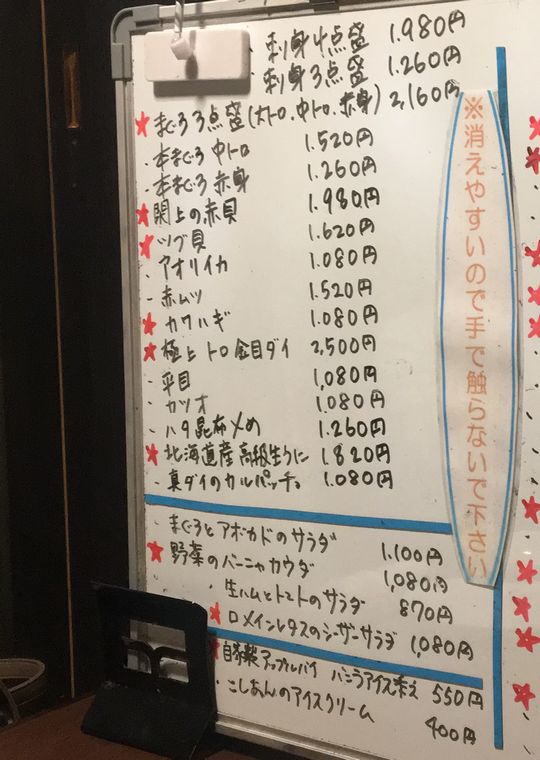 ・刺身4点盛 1.980円
刺身3点盛 1.260円
★まぐろ3点盛(大トロ、中トロ、赤身) 2,160円
・本まぐろ 中トロ 1.520円
・本まぐろ 赤身 1.260円
★閖上の赤貝 1.980円
★ツブ貝 1.620円
・アオリイカ 1.080円
・赤ムツ 1.520円
★カワハギ 1.080円
★極上トロ金目ダイ 2,500円
・平目 1,080円
・カツオ 1.080円
・ハタ昆布〆め 1.260円
★北海道産高級生うに 1.820円
・真ダイのカルパッチョ 1.080円
・まぐろとアボカドのサラダ 1.100円
★野菜のバーニャカウダ 1,080円
生ハムとトマトのサラダ 870円
★ロメインレタスのシーザーサラダ 1,080円
★自家製アップルパイ バニラアイス添え 550円
・こしあんのアイスクリーム 400円
※消えやすいので手で触らないで下さい